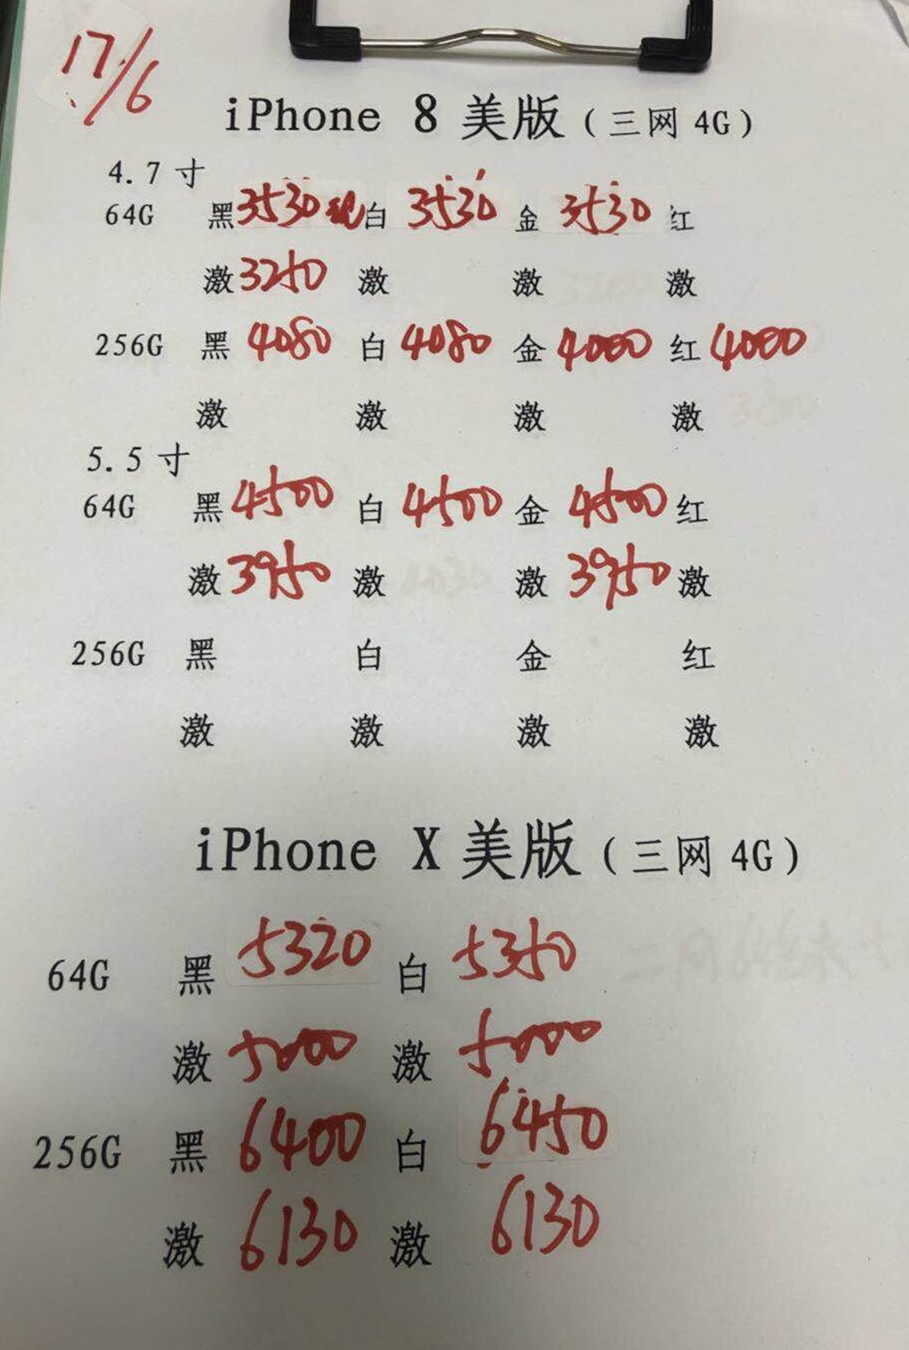 17/6
iPhone 8 美版（三网 4G）
4.7 寸
64G 黑 3530 现 白 3530 金 3530 红
激 3250 激 激 激
256G 黑 4080 白 4080 金 4000 红 4000
激 激 激 激
5.5 寸
64G 黑 4500 白 4500 金 4500 红
激 3950 激 激 3950 激
256G 黑 白 金 红
激 激 激 激
iPhone X 美版（三网 4G）
64G 黑 5320 白 5350
激 5000 激 5000
256G 黑 6400 白 6450
激 6130 激 6130